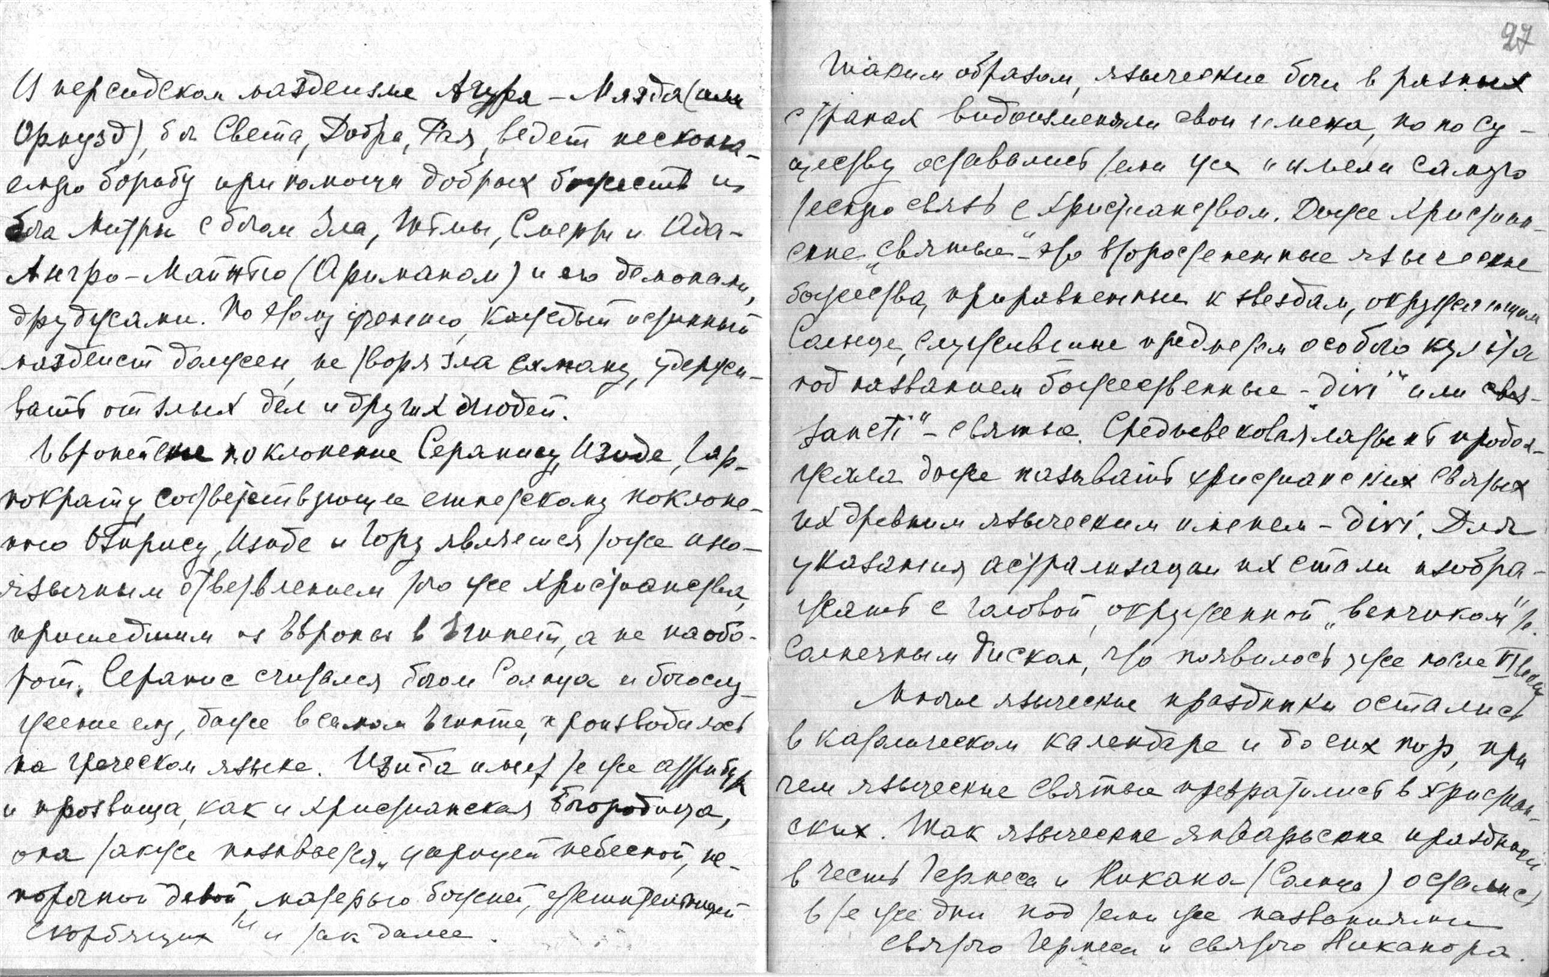 В персидском маздеизме Агура-Мазда (или
Ормузд), бог Света, Добра, Рая, ведет нескончa-
емую борьбу при помощи добрых божеств и
бога Митры с богом Зла, Тьмы, Смерти и Ада -
Ангро-Майнью (Ариманом) и его демонами,
друдусами. По этому учению, каждый истинный
маздеист должен, не творя зла самому, удержи-
вать от злых дел и других людей.
Европейские поклонение Серапису, Изиде, Гар-
пократу, соответствующие египетскому поклоне-
нию Озирису, Изиде и Гору является тоже ино-
язычным ответвлением того же христианства,
пришедшим из Европы в Египет, а не наобо-
рот. Серапис считался богом Солнца и богослу-
жение ему, даже в самом Египте, производилось
на греческом языке. Изида имеет те же атрибуты
и прозвища, как и христианская богородица,
она также называется „царицей небесной, не-
порочной девой, матерью божией, утешительницей
скорбящих" и так далее.
27
Таким образом, языческие боги в разных
странах видоизменяли свои имена, но по су-
ществу оставались теми же и имели самую
тесную связь с христианством. Даже христиан-
ские „святые" - это второстепенные языческие
божества, приравненные к звездам, окружающим
Солнце, служившие предметом особого культа
под названием божественные - „divi" или
„sancti" - святые. Средневековая латынь продол-
жала даже называть христианских святых
их древним языческим именем - divi. Для
указания астрализации их стали изобра-
жать с головой, окруженной „венчиком", т.е.
Солнечным диском, что появилось уже после VI века
Многие языческие праздники остались
в католическом календаре и до сих пор, при
чем языческие святые превратились в христиан-
ских. Так языческие январские праздники
в честь Гермеса и Никана (Солнца) остались
в те же дни под теми же названиями
святого Гермеса и святого Никанора.